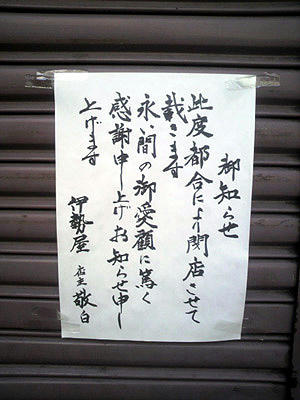 御知らせ
此度都合により閉店させて
戴きます
永い間の御愛顧に篤く
感謝申し上げお知らせ申し
上げます
伊勢屋 店主 敬白